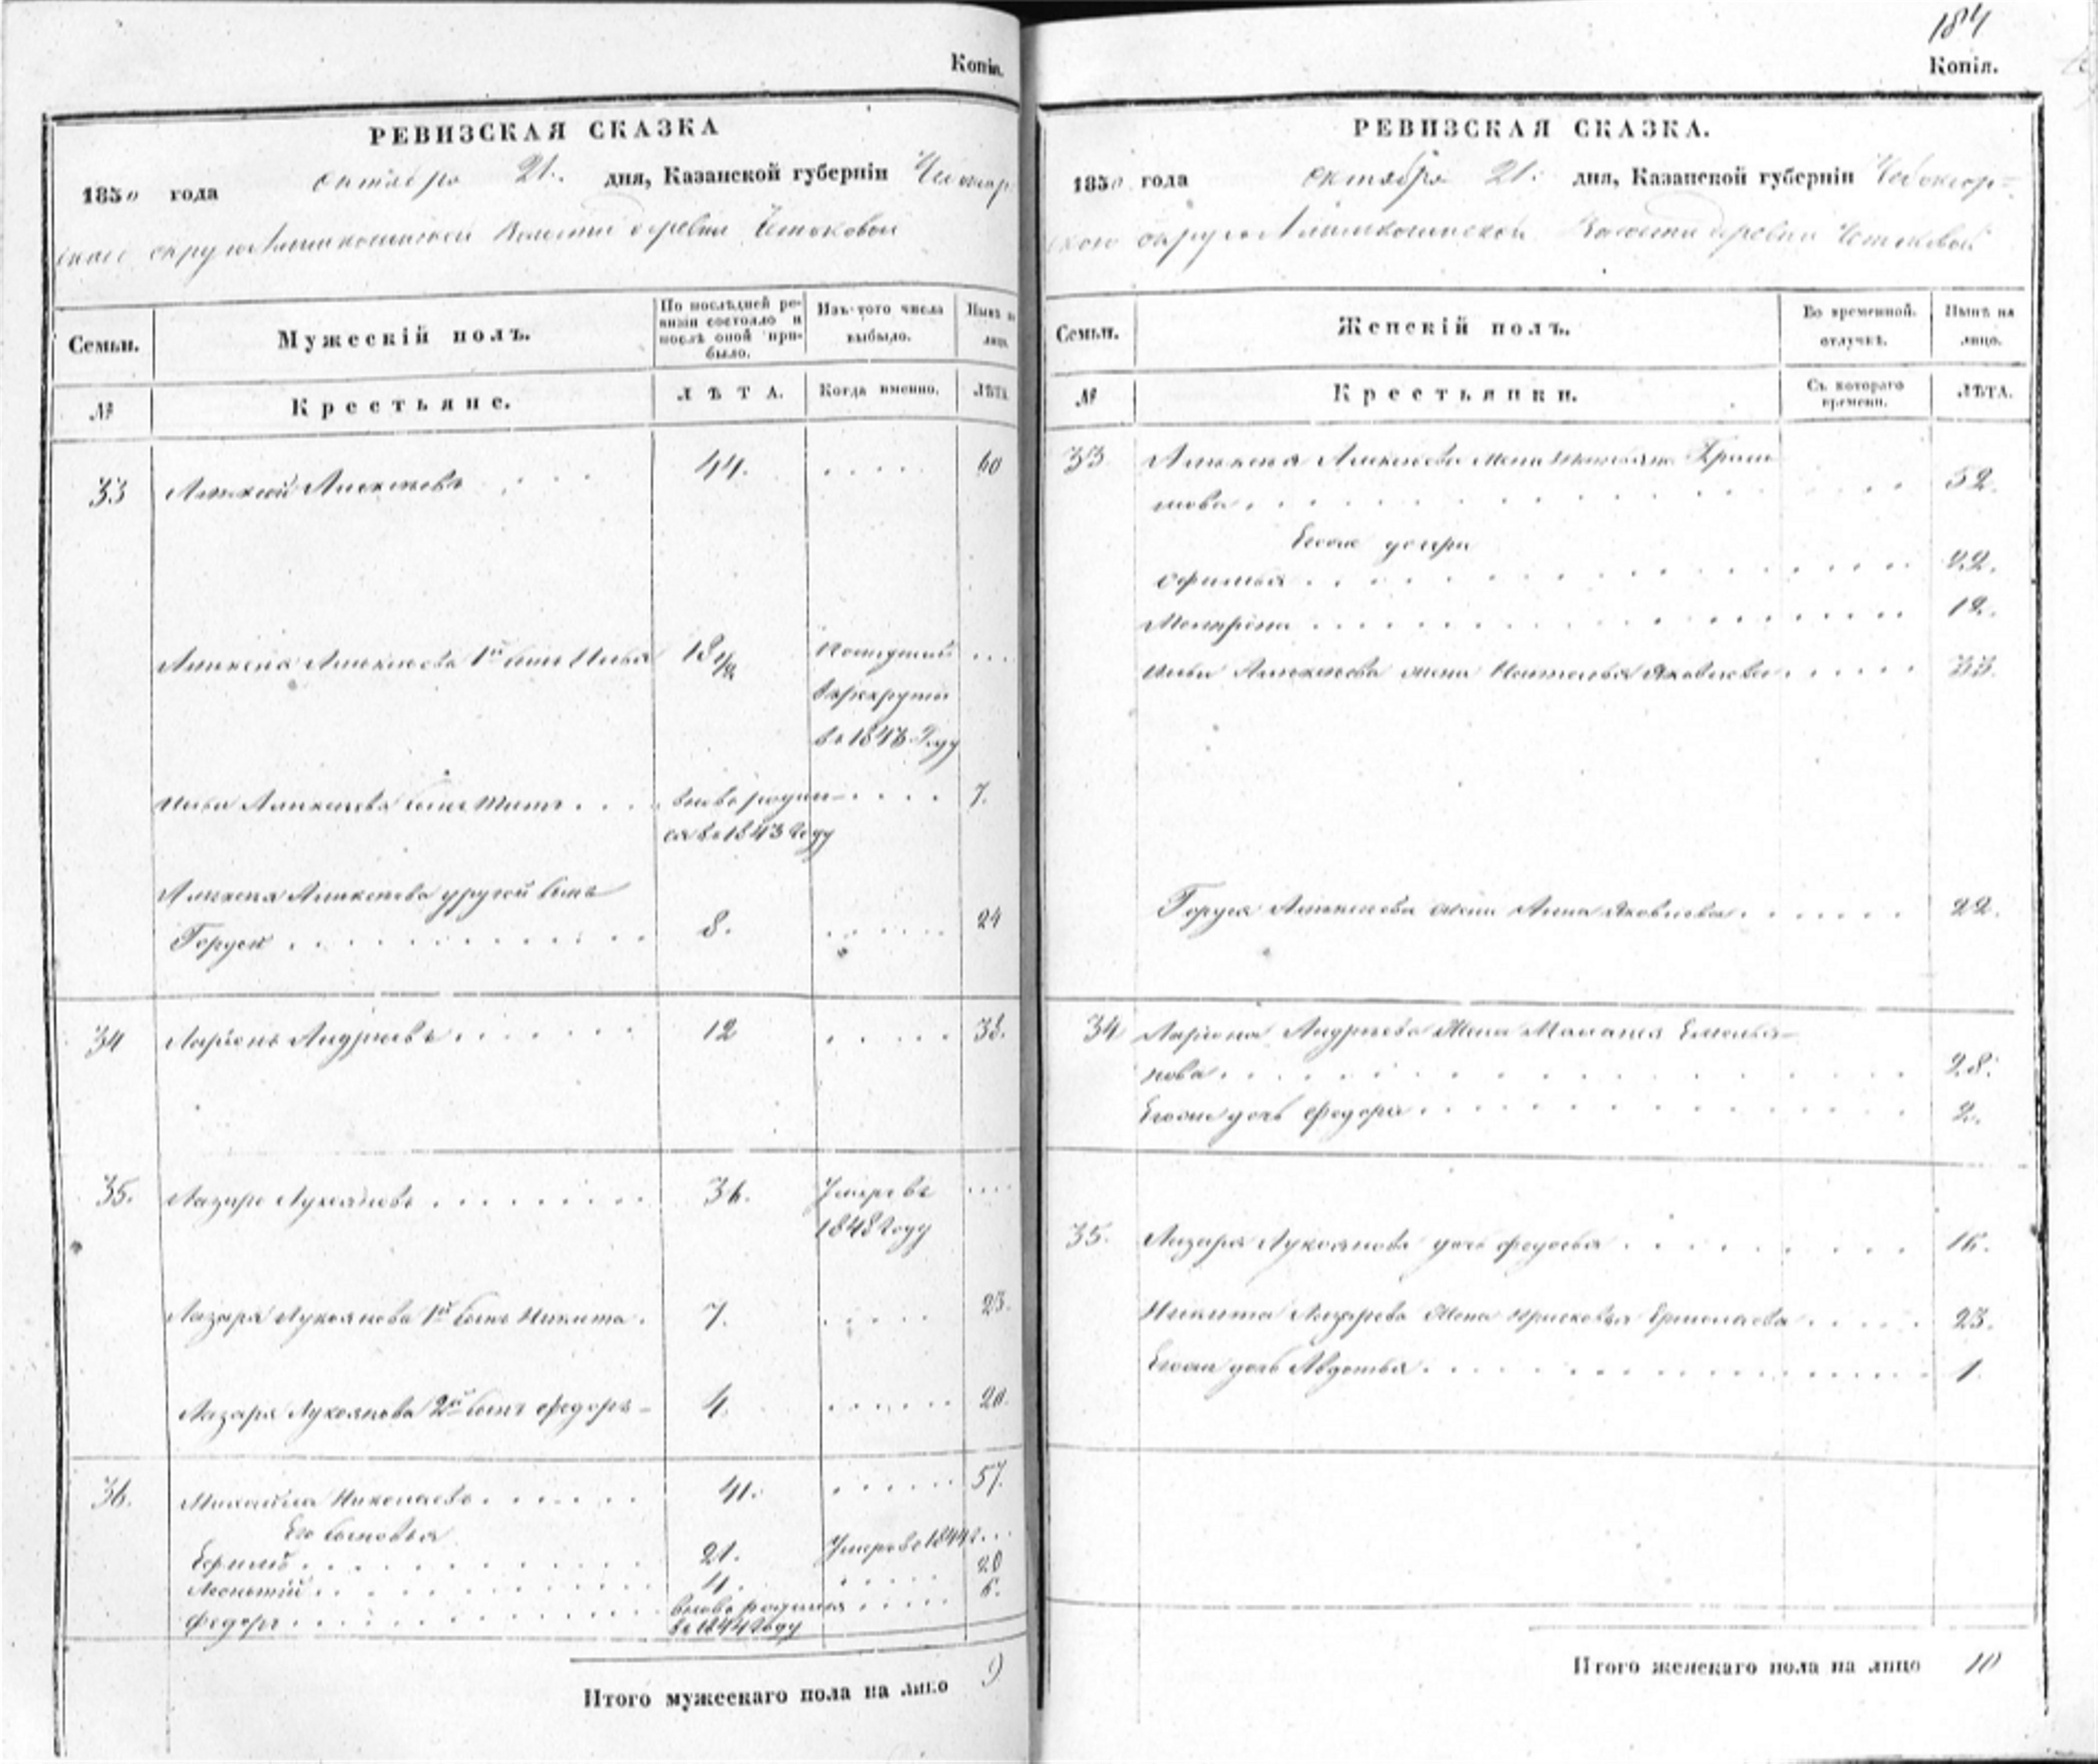 Копія.
РЕВИЗСКАЯ СКАЗКА
1850 года октября 21. дня, Казанской губерніи
округа волости деревни
Семьи.
Мужескій полъ.
По послѣдней ревизіи состояло и послѣ оной прибыло.
Изъ того числа выбыло.
Нынѣ на лицо.
№
Крестьяне.
ЛѢТА.
Когда именно.
ЛѢТА.
33 Алексей Алексеевъ 44. 60
Алексея Алексеева 1й сынъ Илья 18
въ рекруты
Ильи Алексеева сынъ Титъ . . . . вновь родил- . . . . 7.
ся въ 1843 году
Алексея Алексеева другой сынъ
Гордей 8. 24
34 Ларионъ Андреевъ 12
35. Лазарь Лукояновъ Умеръ въ
1848 году
Лазаря Лукоянова 1й сынъ Никита . 7. 23.
Лазаря Лукоянова 2й сынъ Федоръ 4. 20.
36. Михайла Николаевъ 41. 57.
Его сыновья
21. Умеръ въ 1844 г.
4. 20
Федоръ вновь родился 6.
въ 1844 году
Итого мужескаго пола на лицо 9
184
Копія.
РЕВИЗСКАЯ СКАЗКА.
1850 года октября 21. дня, Казанской губерніи Чебоксар=
скаго округа волости деревни
Семьи.
Женскій полъ.
Во временной отлучкѣ.
Нынѣ на лицо.
№
Крестьянки.
Съ котораго времени.
ЛѢТА.
33. Алексея Алексеева жена
нова 52.
Егоже дочери
Офимья 22.
Матрена 12.
Ильи Алексеева жена Наталья Яковлева 33.
Гордея Алексеева жена Анна Яковлева 22.
34 Лариона Андреева жена Маланья Емелья=
нова 28.
Егоже дочь Федора 2.
35. Лазаря Лукоянова дочь Федосья 16.
Никита Лазарева жена Прасковья Ермолаева 23.
Егоже дочь Авдотья 1.
Итого женскаго пола на лицо 10